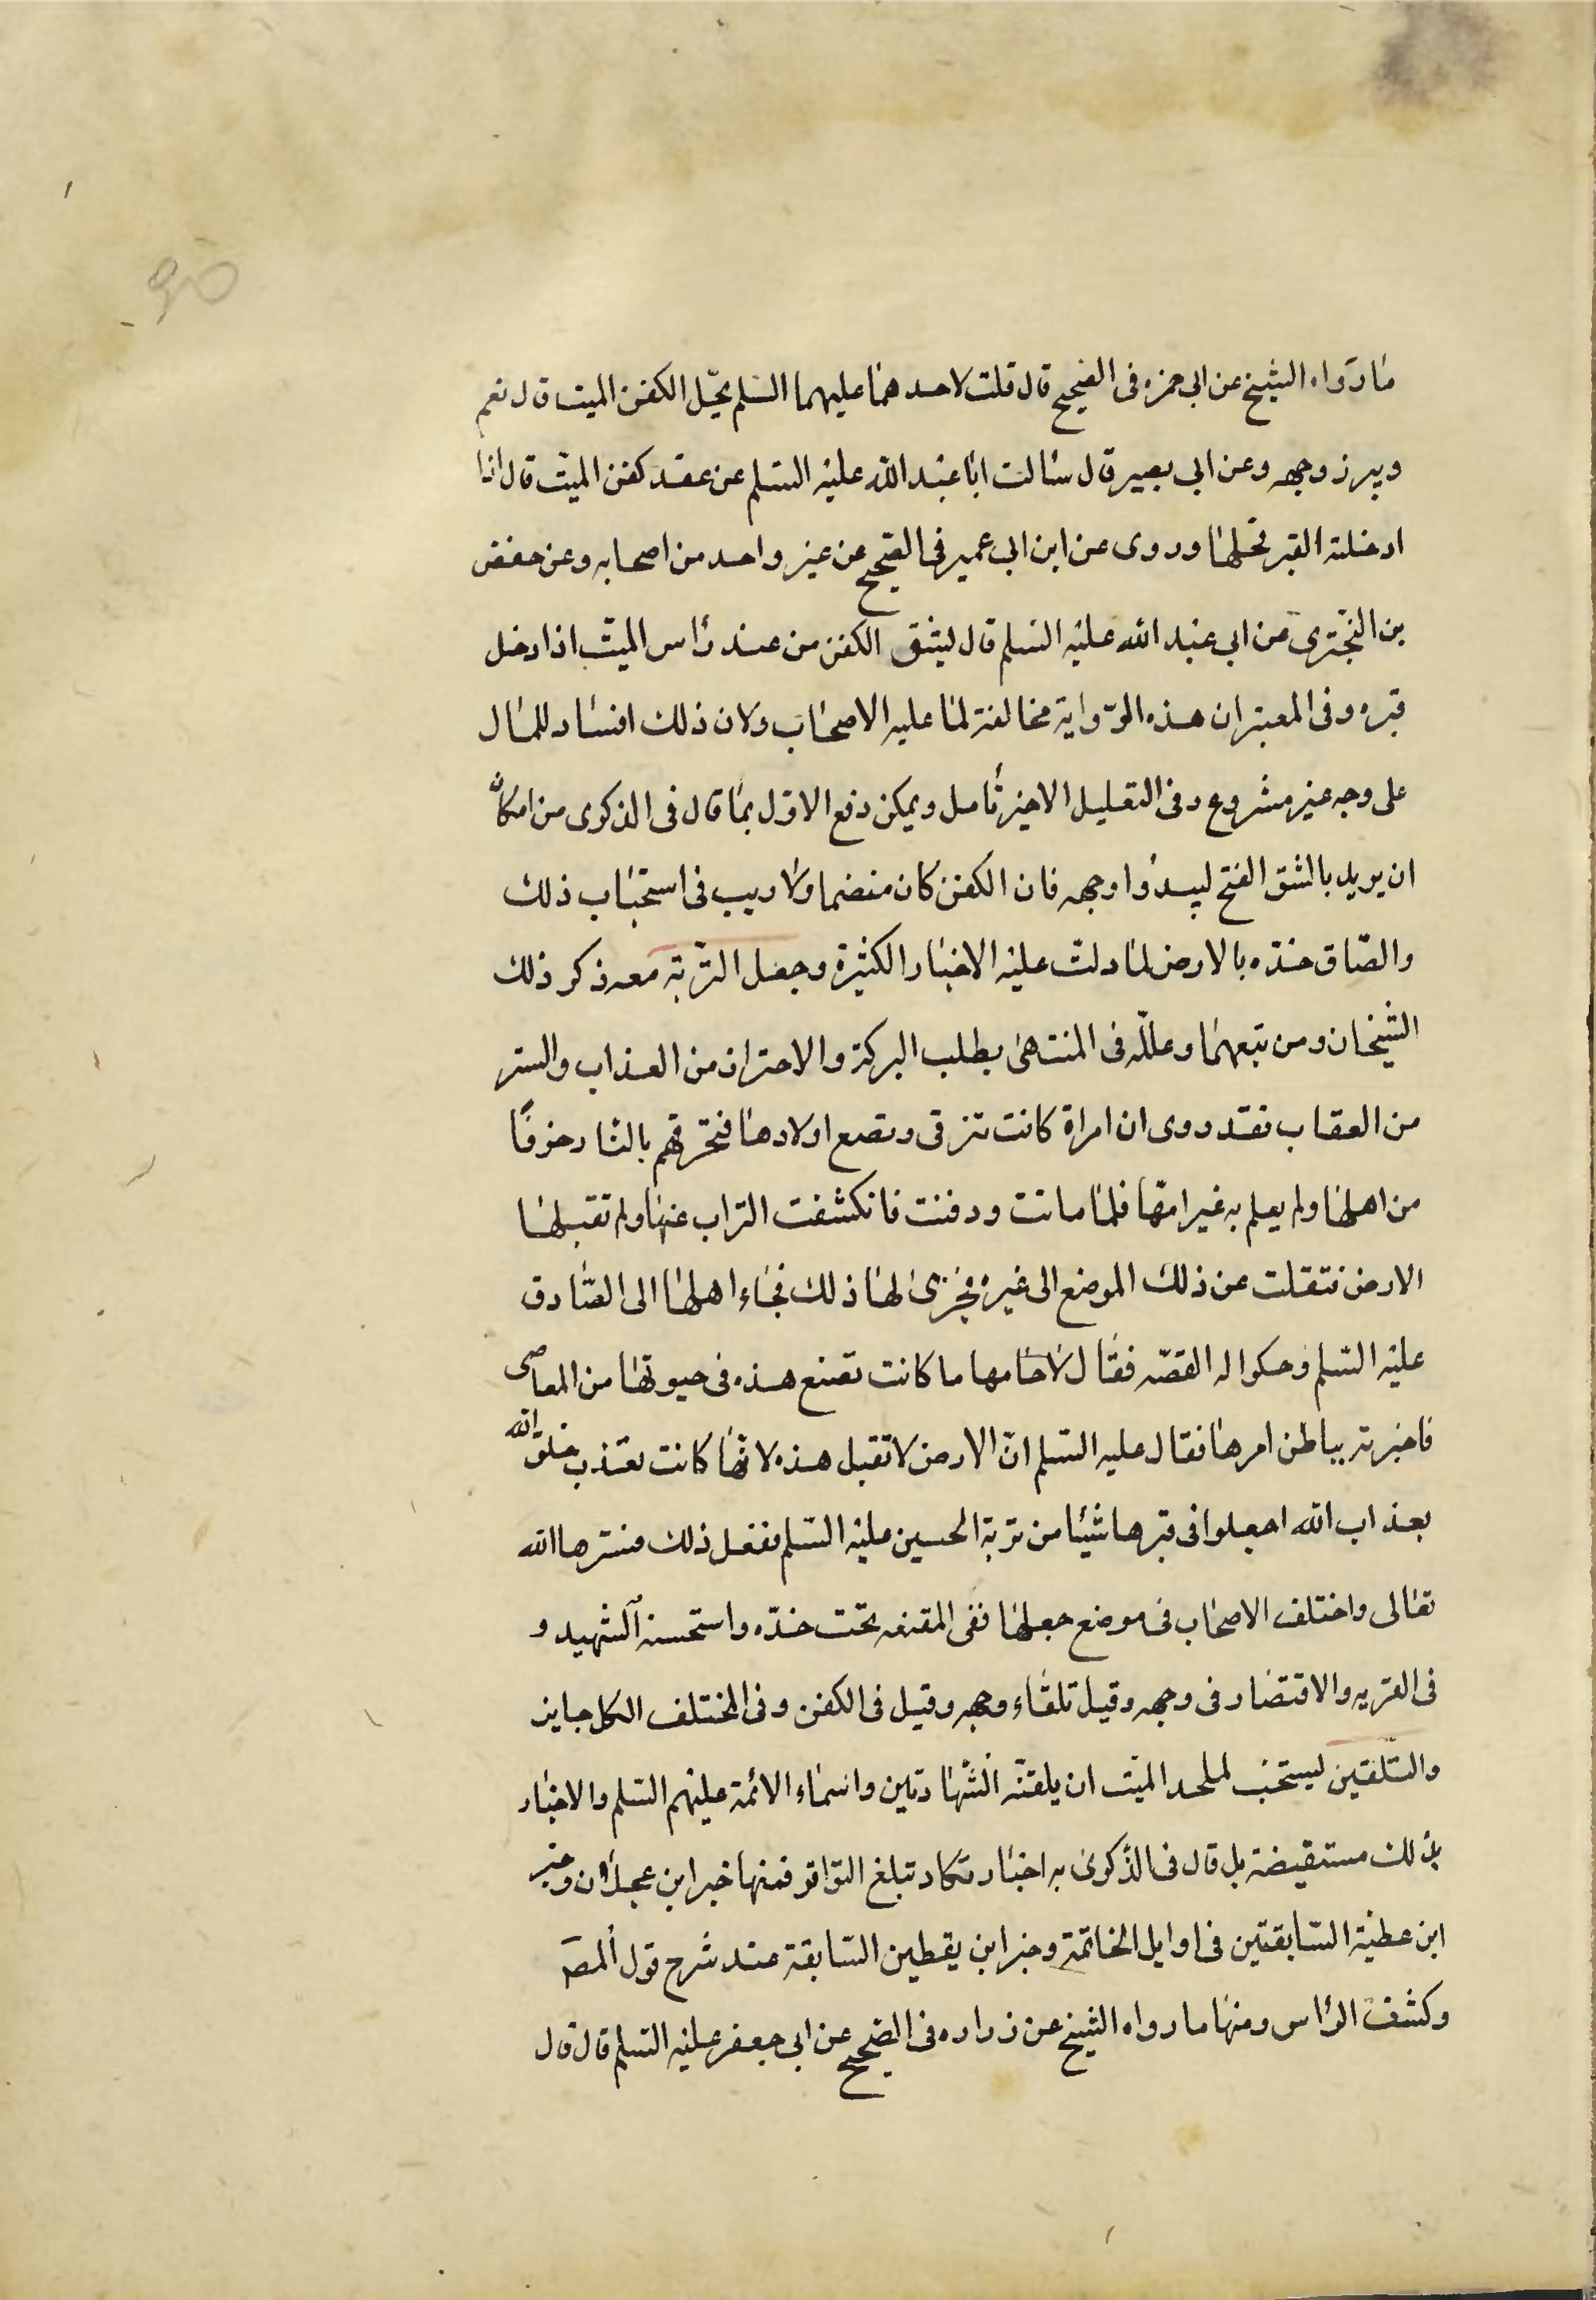 ما رواه الشيخ عن ابى حمزه فى الصحيح قال قلت لاحدهما عليهما السلم يحل الكفن الميت قال نعم
ويبرز وجهه وعن ابى بصير قال سالت ابا عبد الله عليه السلم عن عقد كفن الميت قال اذا
ادخلته القبر فحلها وروى عن ابن ابى عمير فى الصحيح عن غير واحد من اصحابه وعن حفص
بن البختري عن ابى عبد الله عليه السلم قال ليشق الكفن من عند راس الميت اذا ادخل
قبره وفى المعتبر ان هذه الرواية مخالفة لما عليه الاصحاب ولان ذلك افساد للمال
على وجه غير مشروع وفى التعليل الاخير تأمل ويمكن دفع الاول بما قال فى الذكرى من امكان
ان يريد بالشق الفتح ليبدوا وجهه فان الكفن كان منضما ولا ريب فى استحباب ذلك
والصاق خده بالارض لما دلت عليه الاخبار الكثيرة وجعل التربة معه ذكر ذلك
الشيخان ومن تبعهما وعلله فى المنتهى بطلب البركة والاحتراز من العذاب والستر
من العقاب فقد روى ان امراة كانت تزنى وتضع اولادها فتحرقهم بالنار خوفًا
من اهلها ولم يعلم به غير امها فلما ماتت ودفنت فانكشفت التراب عنها ولم تقبلها
الارض فنقلت عن ذلك الموضع الى غيره فجرى لها ذلك فجاء اهلها الى الصادق
عليه السلم وحكوا له القصة فقال لامها ما كانت تصنع هذه فى حيوتها من المعاصى
فاخبرته بباطن امرها فقال عليه السلم ان الارض لا تقبل هذه لانها كانت تعذب خلق الله
بعذاب الله اجعلوا فى قبرها شيئا من تربة الحسين عليه السلم ففعل ذلك فسترها الله
تعالى واختلف الاصحاب فى موضع جعلها ففى المقنعه تحت خده واستحسنه الشهيد و
فى العزيه والاقتصاد فى وجهه وقيل تلقاء وجهه وقيل فى الكفن وفى المختلف الكل جايز
والتلقين ليستحب لملحد الميت ان يلقنه الشهادتين واسماء الائمة عليهم السلم والاخبار
بذلك مستفيضة بل قال فى الذكرى به اخبار تكاد تبلغ التواتر فمنها خبر ابن عجلان وخبر
ابن عطية السابقتين فى اوايل الخاتمة وخبر ابن يقطين السابقة عند شرح قول المصَ
وكشف الرأس ومنها ما رواه الشيخ عن زراره فى الصحيح عن ابى جعفر عليه السلم قال قال